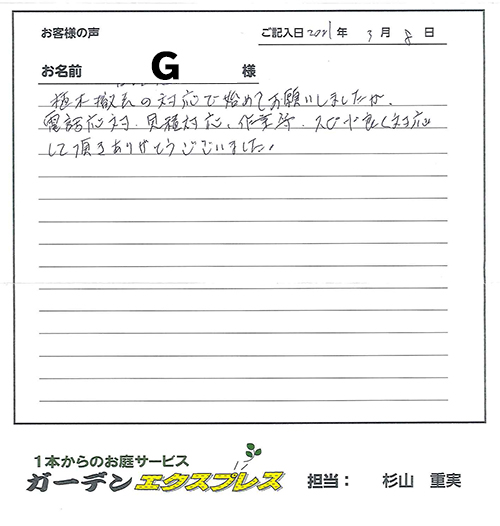 お客様の声
ご記入日 2021年 3月 8日
お名前 G 様
植木撤去の対応で始めてお願いしましたが、
電話応対、見積対応、作業等、スピード良く対応
して頂きありがとうございました!
1本からのお庭サービス
ガーデンエクスプレス 担当： 杉山 重実